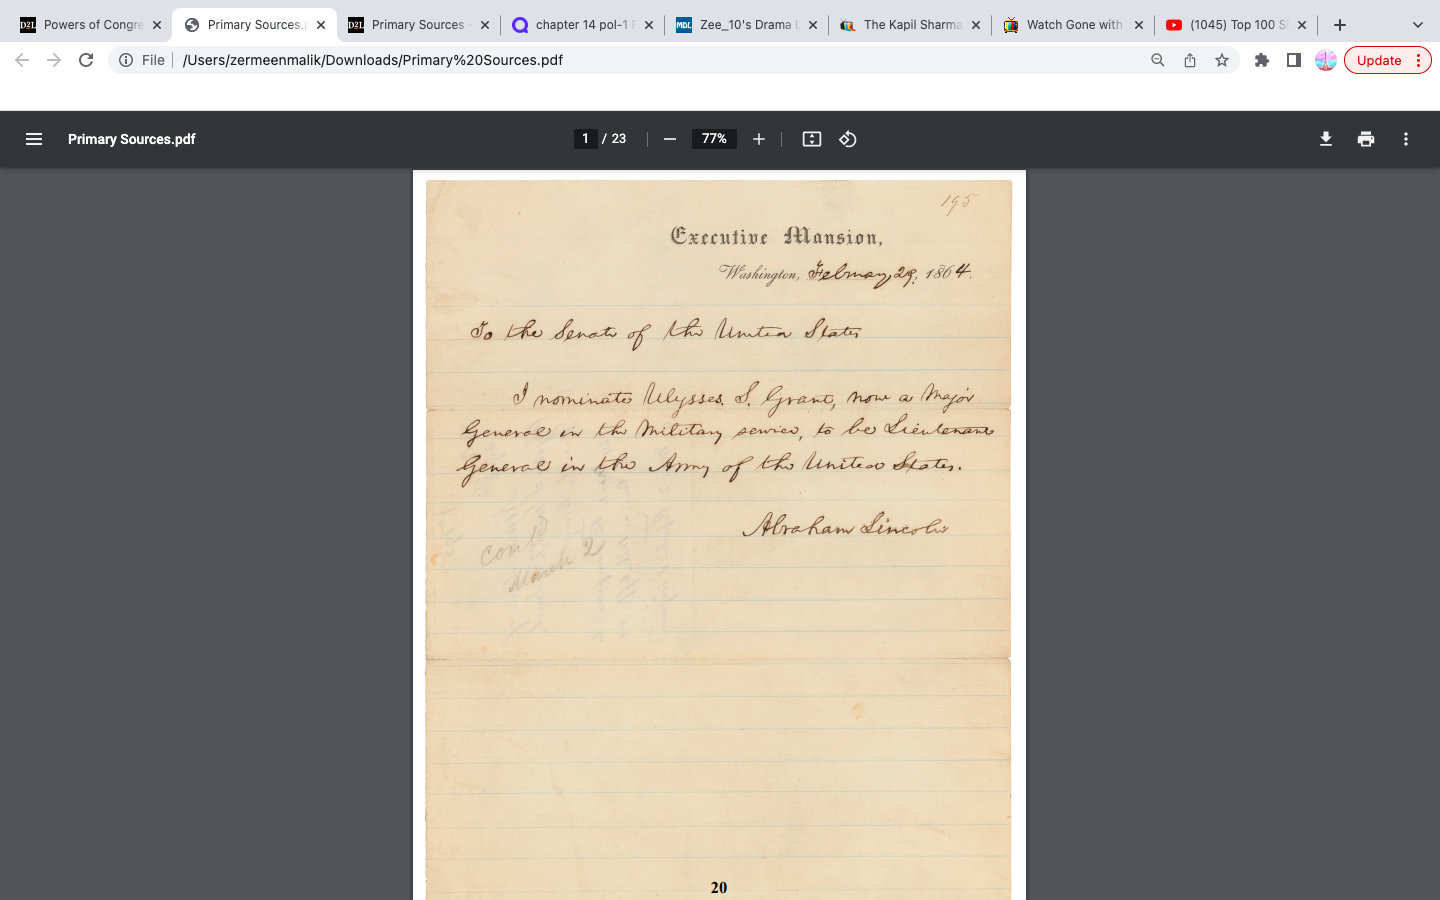 Powers of Congre
Primary Sources.p
Primary Sources -
chapter 14 pol-1 F
Zee_10's Drama L
The Kapil Sharma
Watch Gone with
(1045) Top 100 S
File /Users/zermeenmalik/Downloads/Primary%20Sources.pdf
Update
Primary Sources.pdf
1 / 23
77%
195
Executive Mansion,
Washington, February 29, 1864.
To the Senate of the United States
I nominate Ulysses. S. Grant, now a Major
General in the Military service, to be Lieutenant
General in the Army of the United States.
Abraham Lincoln
Conf'd
March 2
20